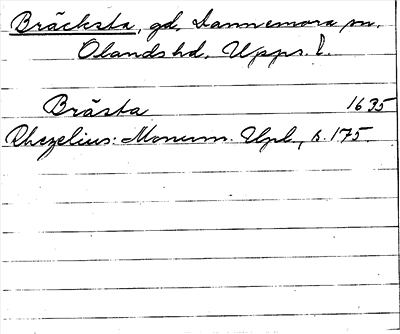 Bräcksta, gd, Dannemora sn,
Olands hd, Upps. l.
Brästa 1635
Rhezelius: Monum. Upl., s. 175.